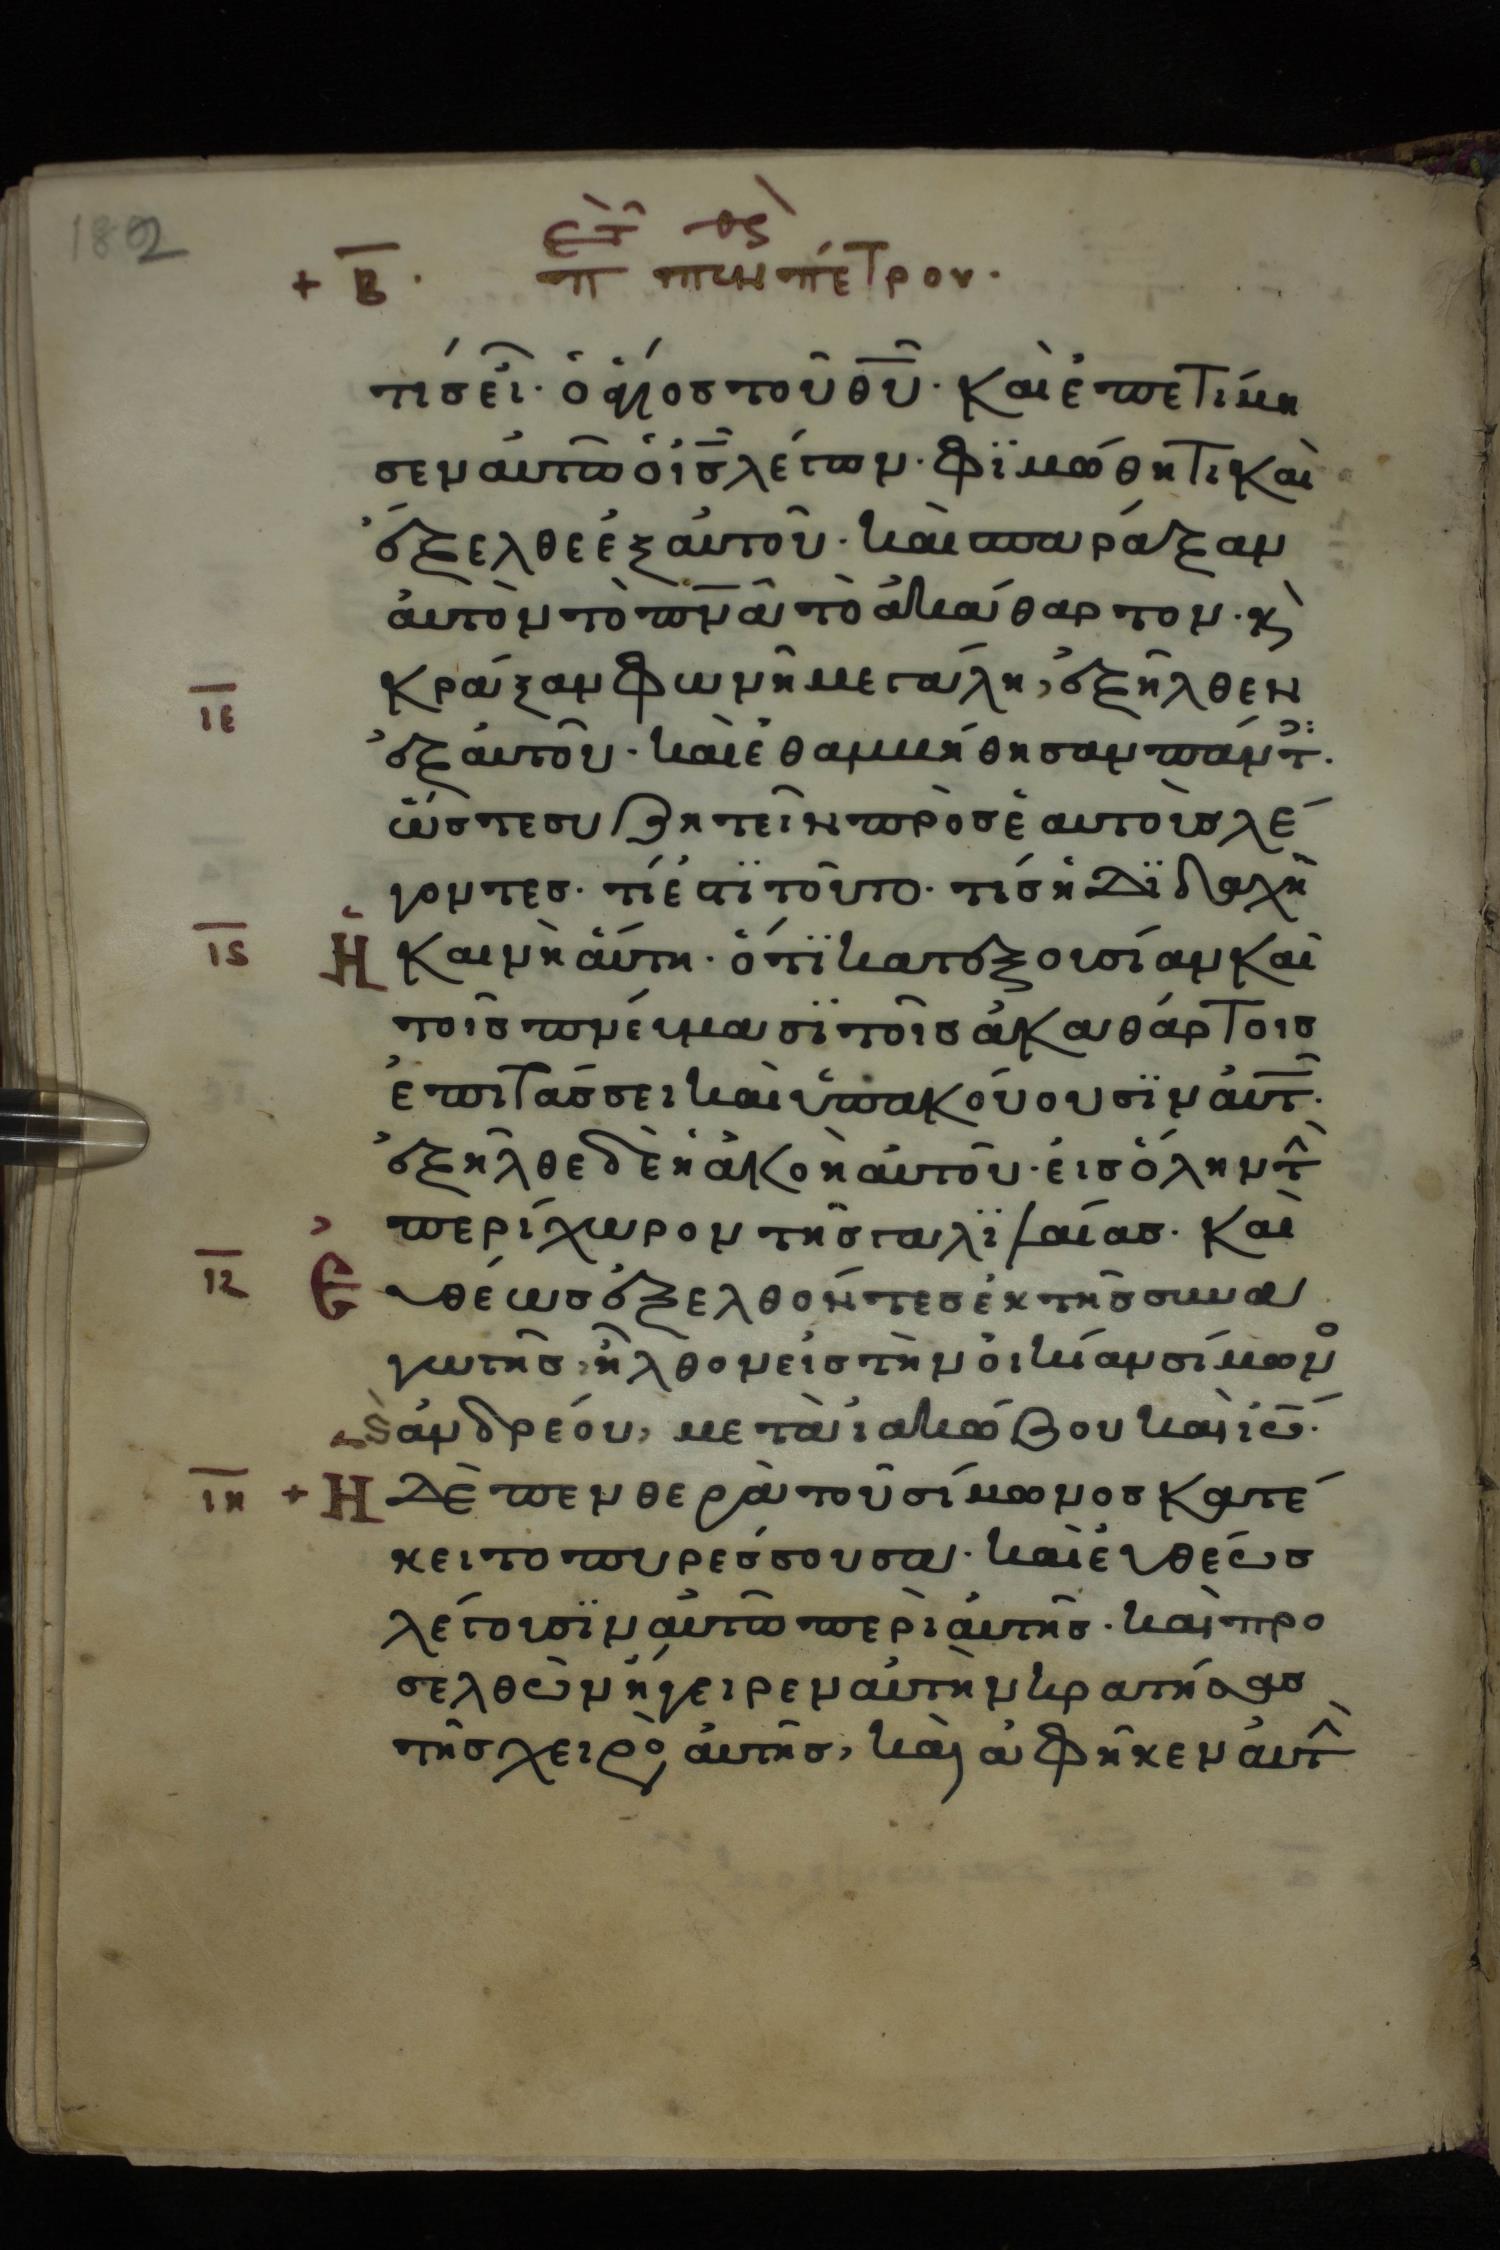 182
+ Β̅ · π πεν πέτρου ·
τίς εἶ · ὁ ἅγιος τοῦ θῦ · καὶ ἐπετίμη
σεν αὐτῶ ὁ ις λέγων · φϊμώθητι καὶ
ἔξελθε ἐξ αὐτοῦ · καὶ σπαράξαν
αὐτὸν τὸ πνᾶ τὸ ἀκάθαρτον · κ̀
ιε κράξαν φωνῆ μεγάλη, ἐξῆλθεν
ἐξ αὐτοῦ · καὶ ἐθαμβήθησαν πάντ ·
ὥστε συζητεῖν πρὸς ἑαυτοὺς λέ
γοντες · τί ἐστϊ τοῦτο · τίς ἡ δϊδαχὴ
ις Ἡ καινὴ αὕτη · ὅτϊ κατ ἐξουσίαν καὶ
τοῖς πνέυμασϊ τοῖς ἀκαθάρτοις
ἐπιτάσσει καὶ ὑπακόυουσϊν ἀυτ̅ ·
ἐξῆλθε δὲ ἡ ἀκοὴ αὐτοῦ · εἰς ὅλην τ̂
περίχωρον τῆς γαλϊλαίας · καὶ
ιζ Ἐ υθέως ἐξελθόντες ἐκ τῆς συνα
γωγῆς, ἦλθον εἰς τὴν ὀικίαν σίμων
ὸς ἀνδρέου, μετὰ ἰακώβου καὶ ἰω ·
ιη + Η Δὲ πενθερὰ τοῦ σίμωνος κατέ
κειτο πυρέσσουσα · καὶ ἐυθέως
λέγουσϊν αὐτῶ περὶ αὐτῆς · καὶ προ
σελθὼν ἤγειρεν αὐτὴν κρατήσας
τῆς χειρὸ αὐτῆς, καὶ ἀφῆκεν ἀυτ̂